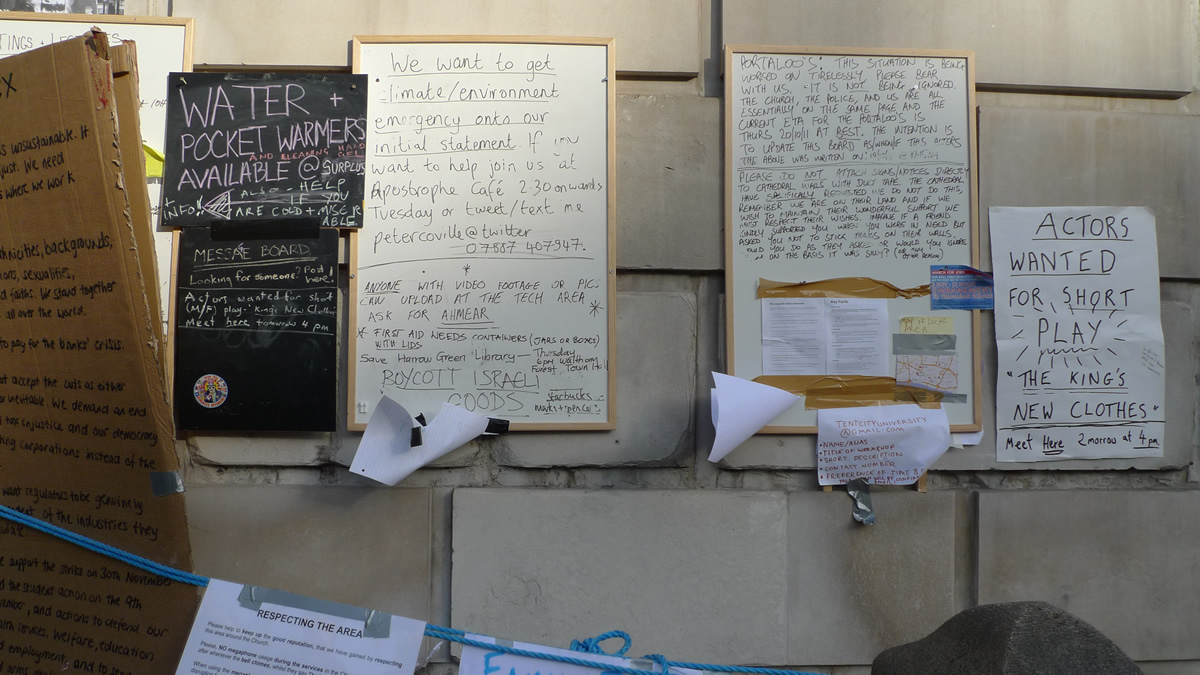 TINGS + LE
unsustainable. It
just. We need
s where we work
ethnicities, backgrounds,
sexualities,
faiths. We stand together
all over the world.
to pay for the banks' crisis.
not accept the cuts as either
or inevitable. We demand an end
tax injustice and our democracy
corporations instead of the
want regulators to be genuinely
of the industries they
support the strike on 30th November
the student action on the 9th
and actions to defend our
welfare, education
employment, and to
WATER +
POCKET WARMERS
AND CLEANING HAND GEL
AVAILABLE @ SURPLUS
ALSO - HELP
IF YOU
INFO! ARE COLD + MISERABLE
MESSAGE BOARD
Looking for someone? Post here!
Actors wanted for short
(M/F) play - 'Kings New Clothes'
Meet here tomorrow 4 pm
We want to get
climate/environment
emergency onto our
initial statement. If you
want to help join us at
Apostrophe Café 2:30 onwards
Tuesday or tweet/text me
petercoville@twitter
07887 407947.
*
ANYONE WITH VIDEO FOOTAGE OR PICS
CAN UPLOAD AT THE TECH AREA
ASK FOR AHMEAR *
* FIRST AID NEEDS CONTAINERS (JARS OR BOXES)
WITH LIDS
Save Harrow Green Library — Thursday
6pm Waltham
Forest Town Hall
BOYCOTT ISRAELI
GOODS
Starbucks
PORTALOO'S: THIS SITUATION IS BEING
WORKED ON TIRELESSLY, PLEASE BEAR
WITH US. IT IS NOT BEING IGNORED.
THE CHURCH, THE POLICE, AND US ARE ALL
ESSENTIALLY ON THE SAME PAGE AND THE
CURRENT ETA FOR THE PORTALOO'S IS
THURS 20/10/11 AT BEST. THE INTENTION IS
TO UPDATE THIS BOARD AS/WHEN/IF THIS ALTERS
THE ABOVE WAS WRITTEN ON
PLEASE DO NOT ATTACH SIGNS/NOTICES DIRECTLY
TO CATHEDRAL WALLS WITH DUCT TAPE. THE CATHEDRAL
HAVE SPECIFICALLY REQUESTED WE DO NOT DO THIS,
REMEMBER WE ARE ON THEIR LAND AND IF WE
WISH TO MAINTAIN THEIR WONDERFUL SUPPORT WE
MUST RESPECT THEIR WISHES. IMAGINE IF A FRIEND
KINDLY SUPPORTED YOU WHEN YOU WERE IN NEED BUT
ASKED YOU NOT TO STICK THINGS ON THEIR WALLS.
WOULD YOU DO AS THEY ASKED OR WOULD YOU IGNORE
ON THE BASIS IT WAS SILLY? (OR ANY OTHER REASON)
Key Facts
MAP OF LOCAL
AREA
TENTCITYUNIVERSITY
@GMAIL.COM
• NAME/ALIAS
• TITLE OF WORKSHOP
• SHORT DESCRIPTION
• CONTACT NUMBER
• PREFERENCE OF TIME
ACTORS
WANTED
FOR SHORT
PLAY
"THE KING'S
NEW CLOTHES"
Meet Here 2morrow at 4 pm
RESPECTING THE AREA
Please help to keep up the good reputation, that we have gained by respecting
the area around the Church.
Please, NO megaphone usage during the services in the
after whenever the bell chimes, whilst they say
When using the